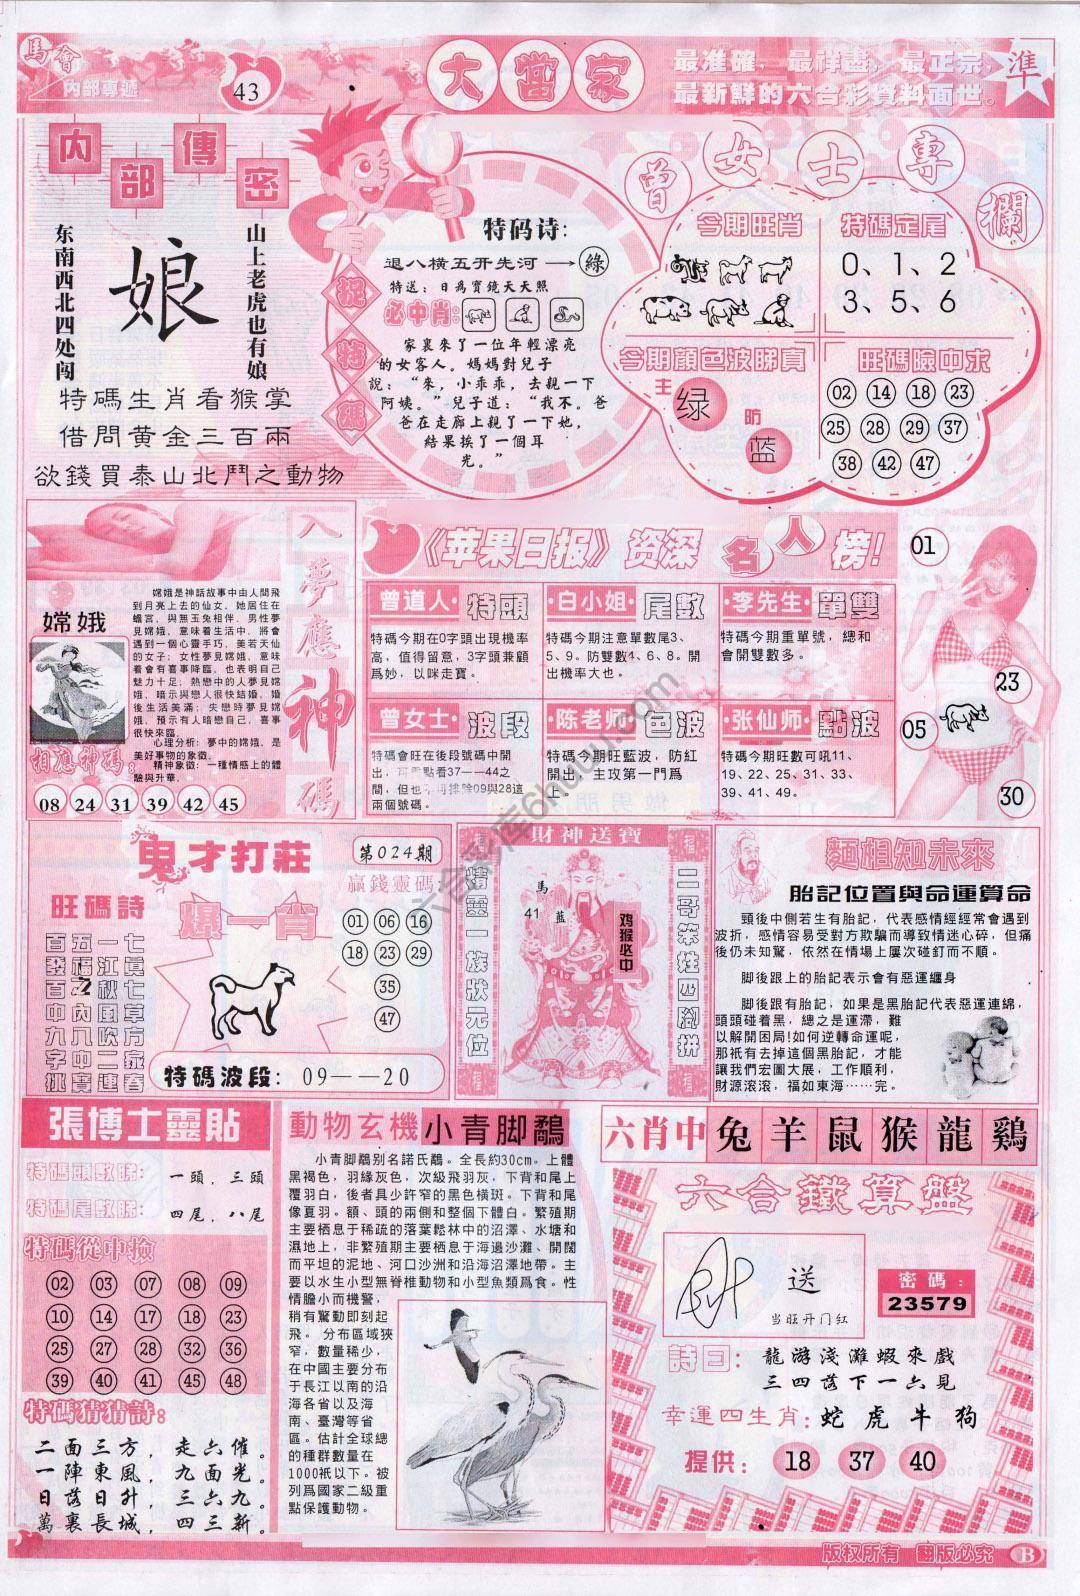 馬會
內部專遞
43
大當家
最准確，最祥盡，最正宗，
最新鮮的六合彩資料面世。
準
內部傳密
山上老虎也有娘
娘
东南西北四处闯
特碼生肖看猴掌
借問黃金三百兩
欲錢買泰山北鬥之動物
捉特碼
特码诗:
退八横五开先河→綠
特送：日爲寳鏡天天照
必中肖:
家裏來了一位年輕漂亮
的女客人。媽媽對兒子
說："來，小乖乖，去親一下
阿姨。"兒子道："我不。爸
爸在走廊上親了一下她，
結果挨了一個耳
光。"
曾女士專欄
今期旺肖
特碼定尾
0、1、2
3、5、6
今期顏色波睇真
主
绿
防
蓝
旺碼險中求
02 14 18 23
25 28 29 37
38 42 47
入夢應神碼
嫦娥
嫦娥是神話故事中由人間飛
到月亮上去的仙女。她居住在
蟾宮，與無玉兔相伴。男性夢
見嫦娥，意味着生活中，將會
遇到一個心靈手巧，美若天仙
的女子；女性夢見嫦娥，意味
着會有喜事降臨，也表明自己
魅力十足；熱戀中的人夢見嫦
娥，暗示與戀人很快結婚，婚
後生活美滿；失戀時夢見嫦
娥，預示有人暗戀自己，喜事
很快來臨。
心理分析：夢中的嫦娥，是
美好事物的象徵。
精神象徵：一種情感上的體
驗與升華。
相應神碼:
08 24 31 39 42 45
《苹果日报》资深名人榜!
曾道人·特頭
特碼今期在0字頭出現機率
高，值得留意，3字頭兼顧
爲妙，以咪走寶。
白小姐·尾數
特碼今期注意單數尾3、
5、9。防雙數4、6、8。開
出機率大也。
李先生·單雙
特碼今期重單號，總和
會開雙數多。
曾女士·波段
特碼會旺在後段號碼中開
出，可重點看37——44之
間，但也不可排除09與28這
兩個號碼。
陈老师·色波
特碼今期旺藍波，防紅
開出，主攻第一門爲
上。
张仙师·點波
特碼今期旺數可吼11、
19、22、25、31、33、
39、41、49。
01
23
05
30
六合彩库6hduv.com
鬼才打莊
第024期
旺碼詩
七真七草方家春
一江秋風吹二連
五福之內八中寶
百發百中九字挑
爆一肖
贏錢靈碼
01 06 16
18 23 29
35
47
特碼波段：09——20
財神送寶
精靈一族狀元位
二哥笨姓四脚拼
馬
41 蓝
鸡猴必中
麵相知未來
胎記位置與命運算命
頸後中側若生有胎記，代表感情經經常會遇到
波折，感情容易受對方欺騙而導致情迷心碎，但痛
後仍未知驚，依然在情場上屢次碰釘而不順。
脚後跟上的胎記表示會有惡運纏身
脚後跟有胎記，如果是黑胎記代表惡運連綿，
頭頭碰着黑，總之是運滯，難
以解開困局!如何逆轉命運呢，
那祇有去掉這個黑胎記，才能
讓我們宏圖大展，工作順利，
財源滾滾，福如東海……完。
張博士靈貼
特碼頭數睇:
一頭，三頭
特碼尾數睇:
四尾，八尾
特碼從中撿
02 03 07 08 09
10 14 17 18 23
25 27 28 32 36
39 40 41 45 48
特碼猜猜詩:
二面三方，走六催。
一陣東風，九面光。
日落日升，三六九。
萬裏長城，四三新。
動物玄機 小青脚鷸
小青脚鷸别名諾氏鷸。全長約30cm。上體
黑褐色，羽緣灰色，次級飛羽灰，下背和尾上
覆羽白，後者具少許窄的黑色橫斑。下背和尾
像夏羽。額、頭的兩側和整個下體白。繁殖期
主要栖息于稀疏的落葉鬆林中的沼澤、水塘和
濕地上，非繁殖期主要栖息于海邊沙灘、開闊
而平坦的泥地、河口沙洲和沿海沼澤地帶。主
要以水生小型無脊椎動物和小型魚類爲食。性
情膽小而機警，
稍有驚動即刻起
飛。分布區域狹
窄，數量稀少，
在中國主要分布
于長江以南的沿
海各省以及海
南、臺灣等省
區。估計全球總
的種群數量在
1000衹以下。被
列爲國家二級重
點保護動物。
六肖中 兔羊鼠猴龍鷄
六合鐵算盤
送
当旺开门红
密碼：
23579
詩曰：龍游淺灘蝦來戲
三四落下一六見
幸運四生肖：蛇虎牛狗
提供：18 37 40
版权所有 翻版必究 B